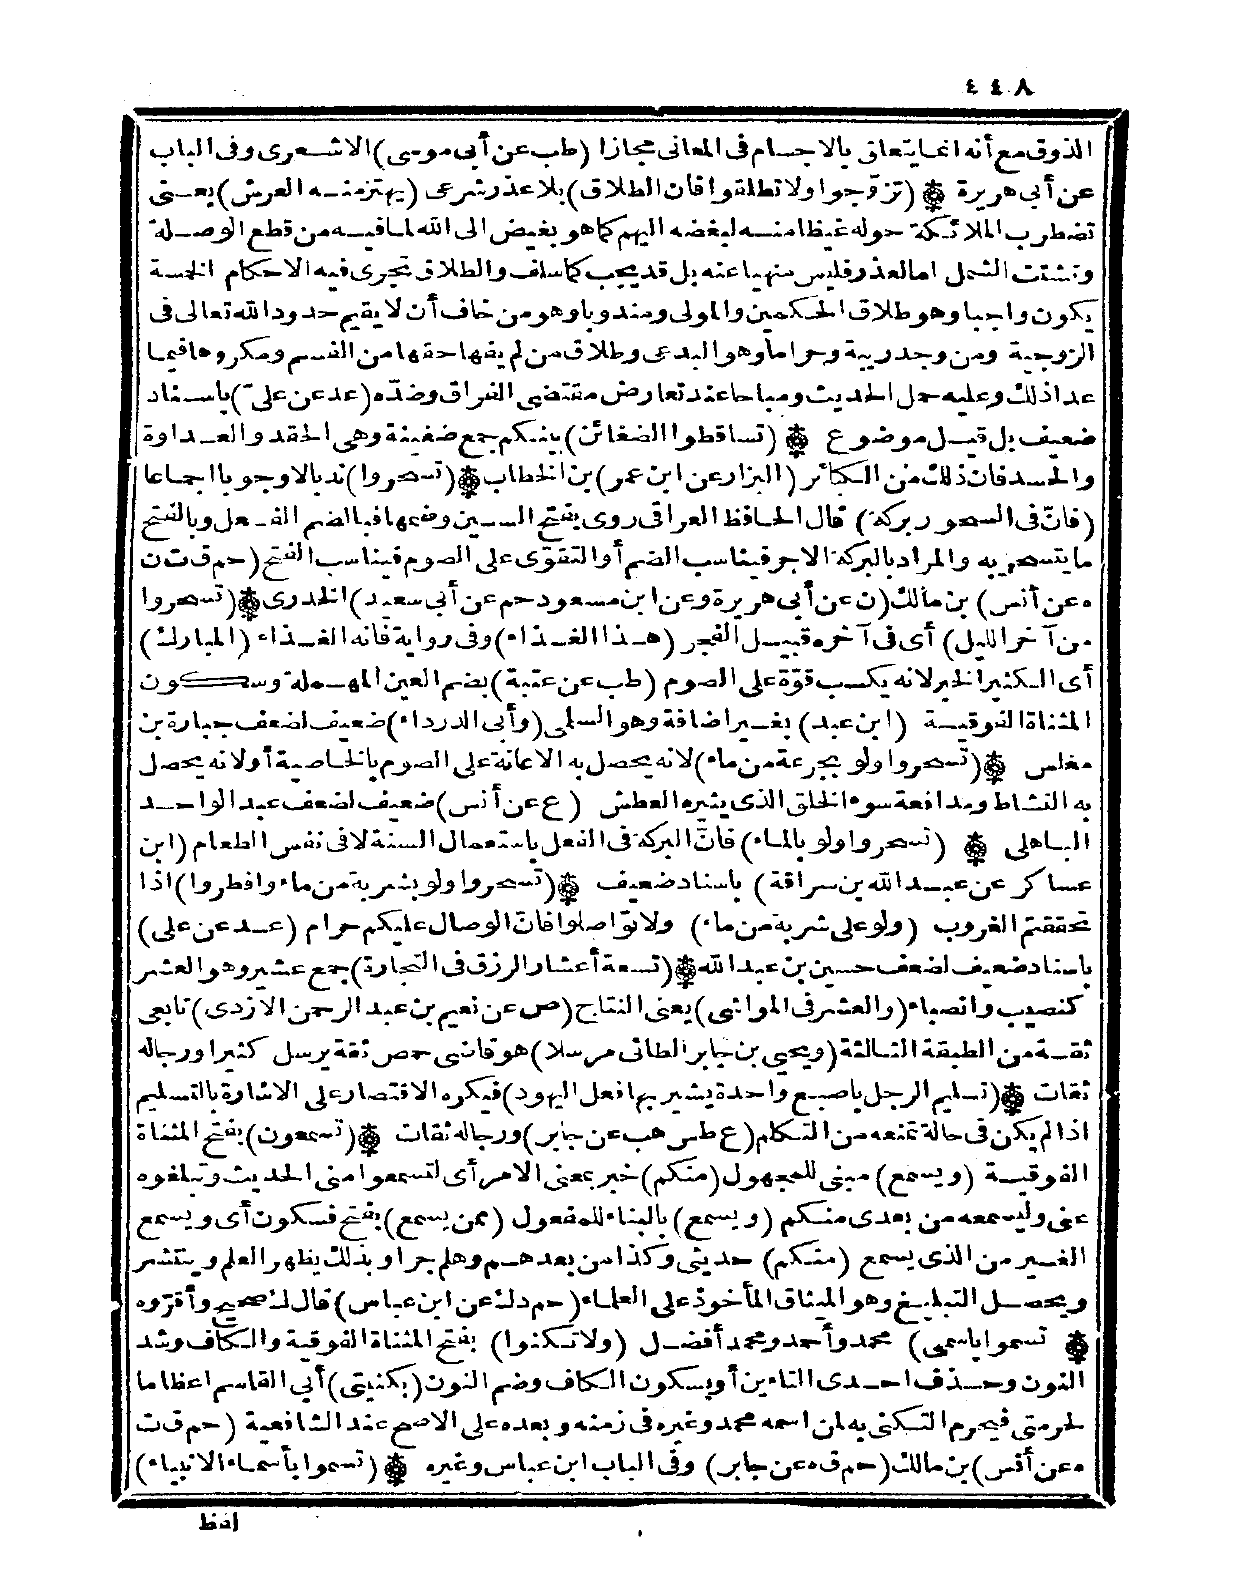 ٤٤٨
الذوق مع أنه انما يتعلق بالاجسام فى المعانى مجازا (طب عن أبى موسى) الاشعرى وفى الباب
عن أبى هريرة ۞ (تزوّجوا ولا تطلقوا فان الطلاق) بلا عذر شرعى (يهتز منه العرش) يعنى
تضطرب الملائكة حوله غيظا منه لبغضه اليهم كما هو بغيض الى الله لما فيه من قطع الوصلة
وتشتت الشمل اما لعذر فليس منهيا عنه بل قد يجب كما سلف والطلاق تجرى فيه الاحكام الخمسة
يكون واجبا وهو طلاق الحكمين والمولى ومندوبا وهو من خاف أن لا يقيم حدود الله تعالى فى
الزوجية ومن وجد ريبة وحراما وهو البدعى وطلاق من لم يفها حقها من القسم ومكروها فيما
عدا ذلك وعليه حمل الحديث ومباحا عند تعارض مقتضى الفراق وضدّه (عد عن علىّ) باسناد
ضعيف بل قيل موضوع ۞ (تساقطوا الضغائن) بينكم جمع ضغينة وهى الحقد والعداوة
والحسد فان ذلك من الكبائر (البزار عن ابن عمر) بن الخطاب ۞ (تسحروا) ندبا لا وجوبا اجماعا
(فانّ فى السحور بركة) قال الحافظ العراقى روى بفتح السين وضمها فبالضم الفعل وبالفتح
ما يتسحر به والمراد بالبركة الاجر فيناسب الضم أو التقوّى على الصوم فيناسب الفتح (حم ق ت ن
ه عن أنس) بن مالك (ن عن أبى هريرة وعن ابن مسعود حم عن أبى سعيد) الخدرى ۞ (تسحروا
من آخر الليل) أى فى آخره قبيل الفجر (هذا الغذاء) وفى رواية فانه الغذاء (المبارك)
أى الكثير الخير لانه يكسب قوّة على الصوم (طب عن عتبة) بضم العين المهملة وسكون
المثناة الفوقية (ابن عبد) بغير اضافة وهو السلمى (وأبى الدرداء) ضعيف لضعف جبارة بن
مغلس ۞ (تسحروا ولو بجرعة من ماء) لانه يحصل به الاعانة على الصوم بالخاصية أو لانه يحصل
به النشاط ومدافعة سوء الخلق الذى يثيره العطش (ع عن أنس) ضعيف لضعف عبد الواحد
الباهلى ۞ (تسحروا ولو بالماء) فانّ البركة فى الفعل باستعمال السنة لا فى نفس الطعام (ابن
عساكر عن عبد الله بن سراقة) باسناد ضعيف ۞ (تسحروا ولو بشربة من ماء وافطروا) اذا
تحققتم الغروب (ولو على شربة من ماء) ولا تواصلوا فانّ الوصال عليكم حرام (عد عن على)
باسناد ضعيف لضعف حسين بن عبد الله ۞ (تسعة أعشار الرزق فى التجارة) جمع عشير وهو العشر
كنصيب وانصباء (والعشر فى المواشى) يعنى النتاج (ص عن نعيم بن عبد الرحمن الازدى) تابعى
ثقة من الطبقة الثالثة (ويحيى بن جابر الطائى مرسلا) هو قاضى حمص ثقة يرسل كثيرا ورجاله
ثقات ۞ (تسليم الرجل باصبع واحدة يشير بها فعل اليهود) فيكره الاقتصار على الاشارة بالتسليم
اذا لم يكن فى حالة تمنعه من التكلم (ع طس هب عن جابر) ورجاله ثقات ۞ (تسمعون) بفتح المثناة
الفوقية (ويسمع) مبنى للمجهول (منكم) خبر بمعنى الامر أى لتسمعوا منى الحديث وتبلغوه
عنى وليسمعه من بعدى منكم (ويسمع) بالبناء للمفعول (ممن يسمع) بفتح فسكون أى ويسمع
الغير من الذى يسمع (منكم) حديثى وكذا من بعدهم وهلم جرا وبذلك يظهر العلم وينتشر
ويحصل التبليغ وهو الميثاق المأخوذ على العلماء (حم د ك عن ابن عباس) قال ك صحيح وأقرّوه
۞ (تسموا باسمى) محمد وأحمد ومحمد أفضل (ولا تكنوا) بفتح المثناة الفوقية والكاف وشد
النون وحذف احدى التاءين أو بسكون الكاف وضم النون (بكنيتى) أبى القاسم اعظاما
لحرمتى فيحرم التكنى به لمن اسمه محمد وغيره فى زمنه وبعده على الاصح عند الشافعية (حم ق ت
ه عن أنس) بن مالك (حم ق ه عن جابر) وفى الباب ابن عباس وغيره ۞ (تسموا بأسماء الانبياء)
لفظ